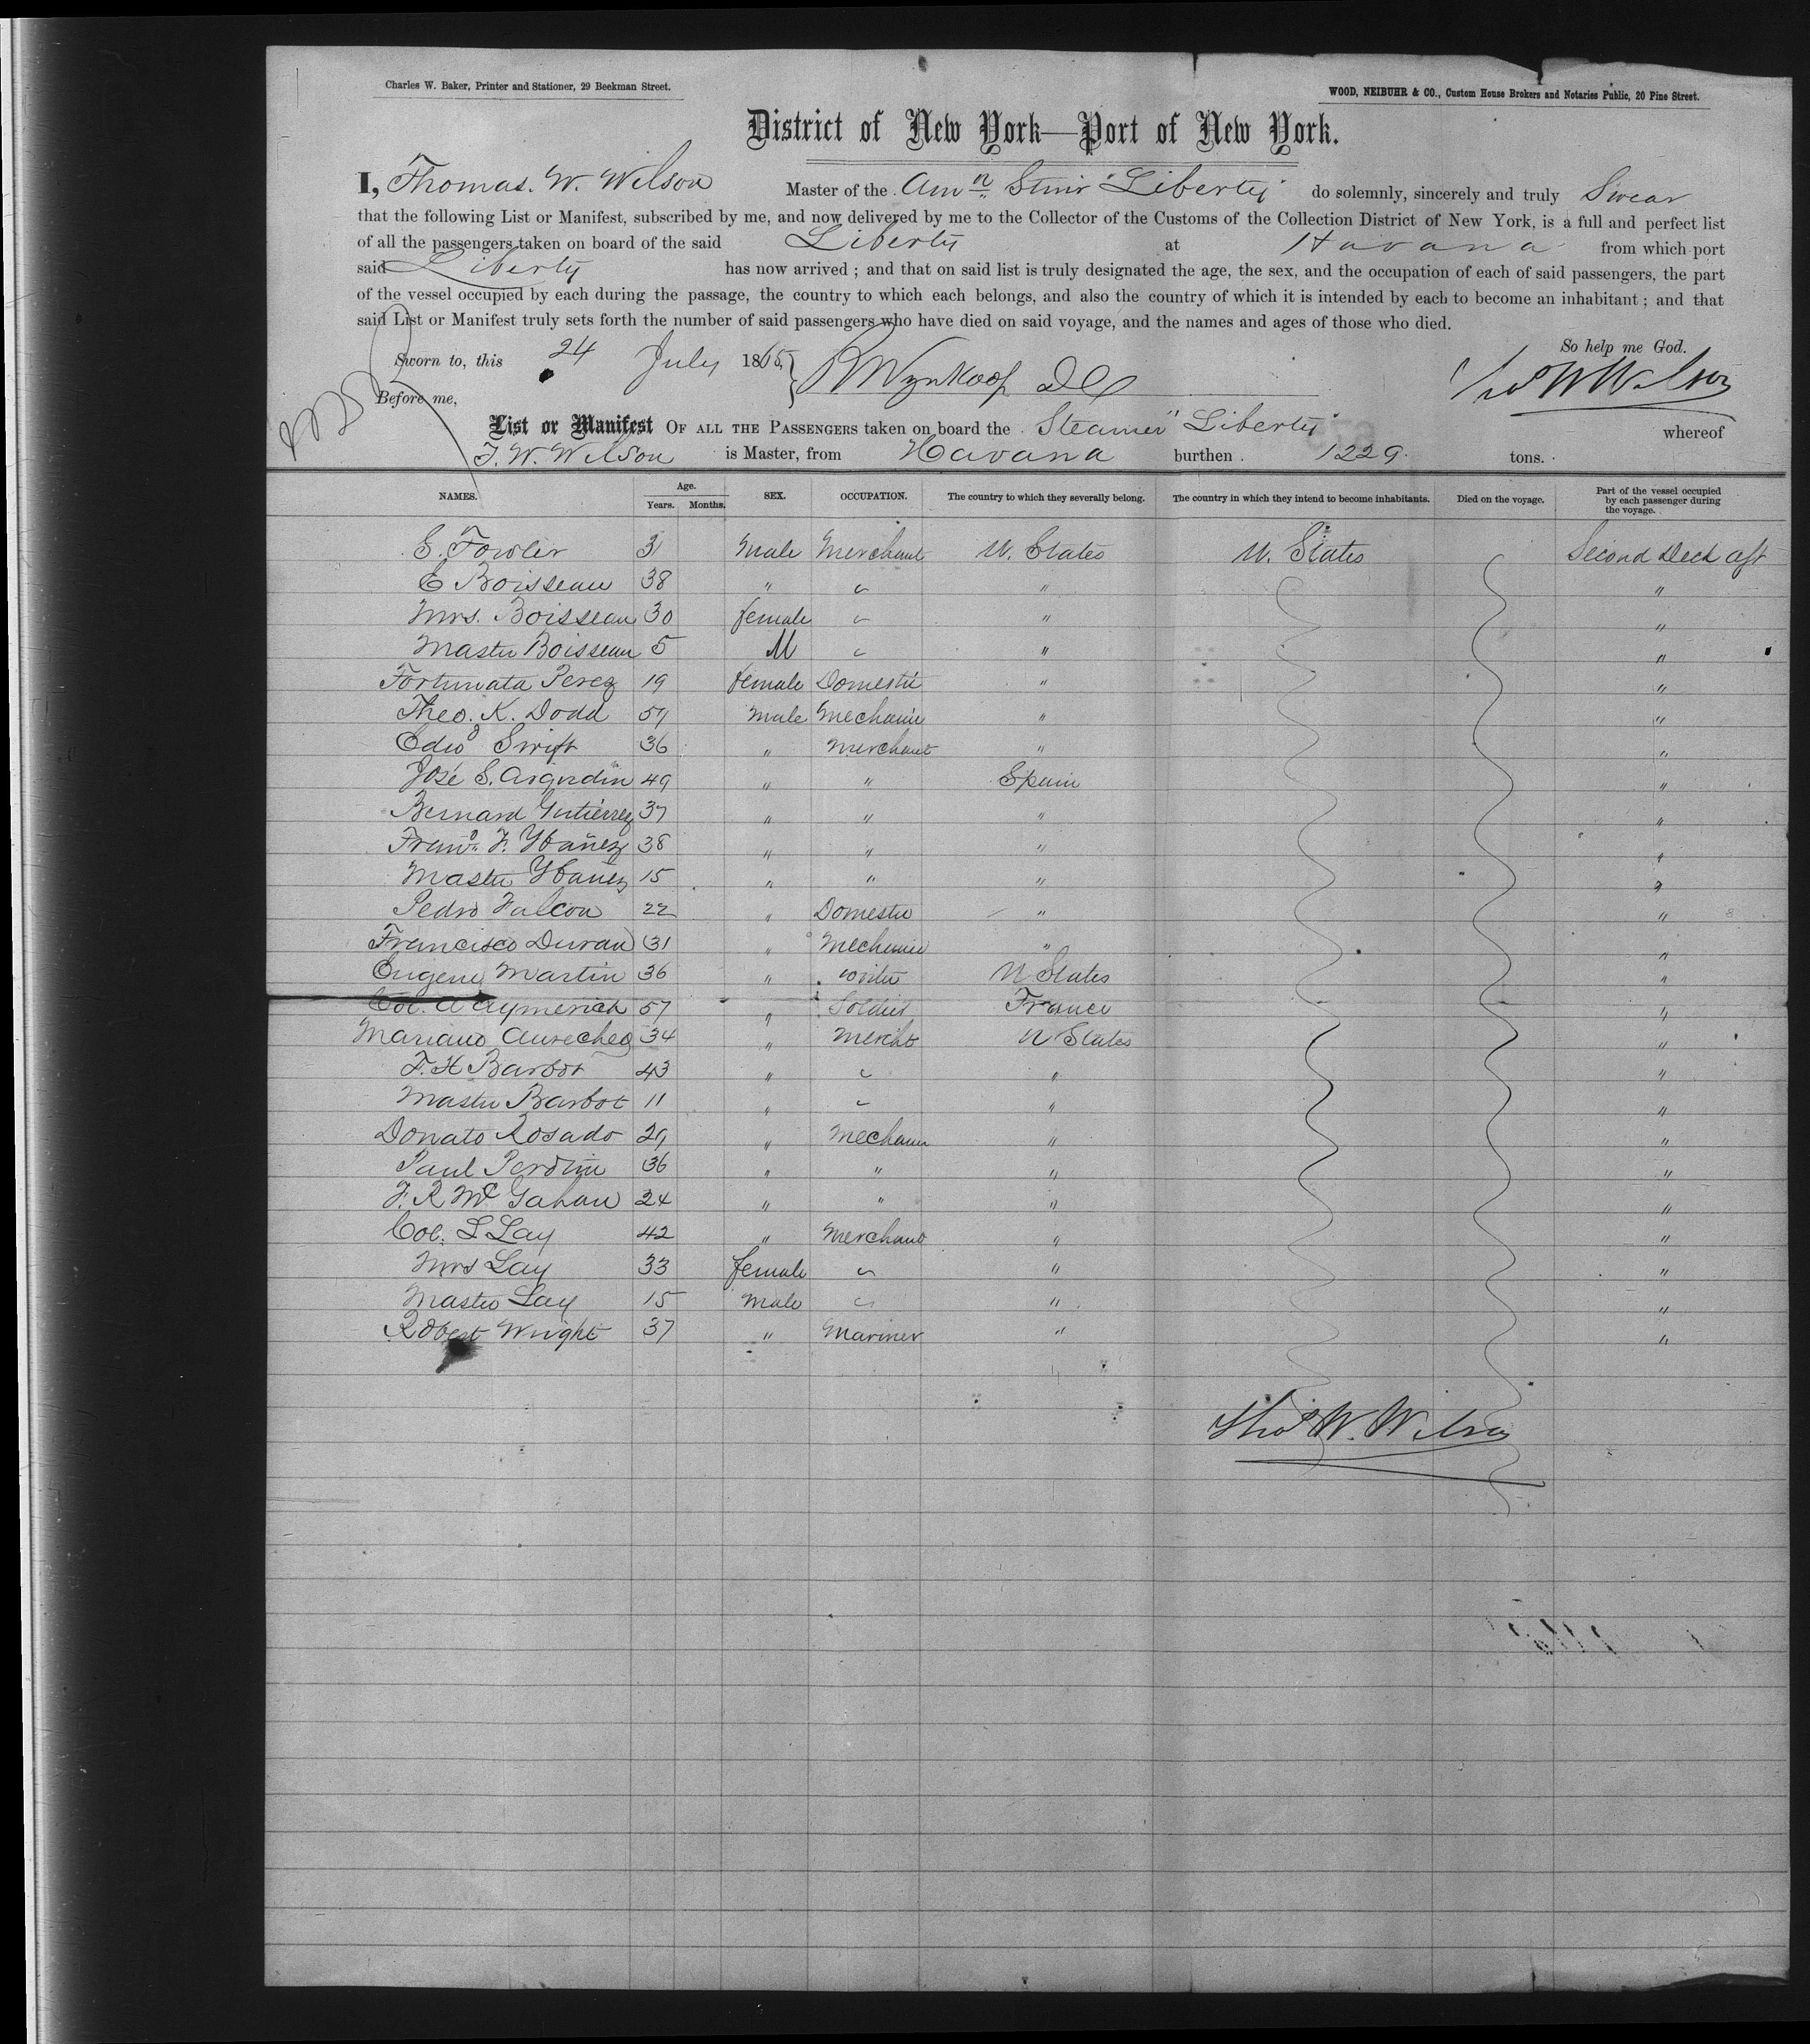 Charles W. Baker, Printer and Stationer, 29 Beekman Street.
WOOD, NEIBUHR & CO., Custom House Brokers and Notaries Public, 20 Pine Street.
District of New York—Port of New York.
I, Thomas. W. Wilson Master of the Amn Stmr "Liberty" do solemnly, sincerely and truly Swear
that the following List or Manifest, subscribed by me, and now delivered by me to the Collector of the Customs of the Collection District of New York, is a full and perfect list
of all the passengers taken on board of the said Liberty at Havana from which port
said Liberty has now arrived ; and that on said list is truly designated the age, the sex, and the occupation of each of said passengers, the part
of the vessel occupied by each during the passage, the country to which each belongs, and also the country of which it is intended by each to become an inhabitant ; and that
said List or Manifest truly sets forth the number of said passengers who have died on said voyage, and the names and ages of those who died.
So help me God.
Sworn to, this 24 July 1865 Wynkoop
Thos W Wilson
Before me,
List or Manifest OF ALL THE PASSENGERS taken on board the Steamer "Liberty" whereof
T. W. Wilson is Master, from Havana burthen 1229 tons.
NAMES. Age. Years. Months. SEX. OCCUPATION. The country to which they severally belong. The country in which they intend to become inhabitants. Died on the voyage. Part of the vessel occupied by each passenger during the voyage.
E. Fowler 31 Male Merchant U. States U. States Second Deck aft
E Boisseau 38 " " " "
Mrs. Boisseau 30 female " " "
Master Boisseau 5 M " " "
Fortunata Perez 19 female Domestic " "
Theo. K. Dodd 57 Male Mechanic " "
Edwd Swift 36 " Merchant " "
José S. Argudin 49 " " Spain "
Bernard Gutierrez 37 " " " "
Franco F. Ybañez 38 " " " "
Master Ybañez 15 " " " "
Pedro Falcon 22 " Domestic " "
Francisco Duran 31 " Mechanic " "
Eugene Martin 36 " writer U States "
Col. A Aymerich 57 " Soldier France "
Mariano 34 " Mercht U States "
F. H Barbot 43 " " " "
Master Barbot 11 " " " "
Donato Rosado 29 " Mechanic " "
Paul 36 " " " "
F. R McGahan 24 " " " "
Col. L Lay 42 " Merchant " "
Mrs Lay 33 female " " "
Master Lay 15 Male " " "
Robert Wright 37 " Mariner " "
Thos W. Wilson